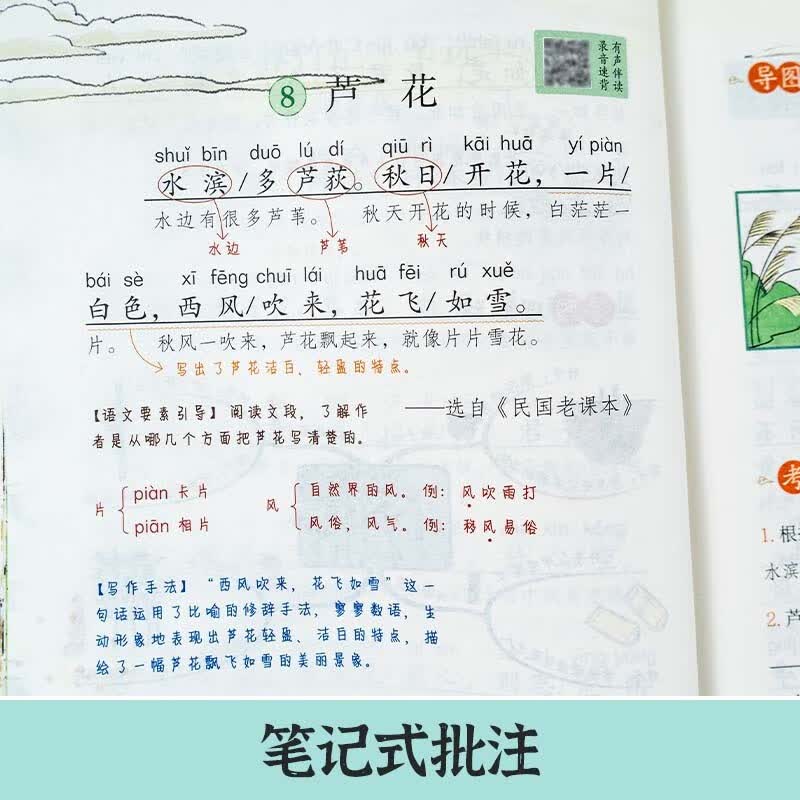 有声伴读
录音速背
8 芦 花
shuǐ bīn duō lú dí qiū rì kāi huā yí piàn
水 滨/多 芦荻。秋日/开 花，一片/
水边有很多芦苇。 秋天开花的时候，白茫茫一
水边 芦苇 秋天
bái sè xī fēng chuī lái huā fēi rú xuě
白色，西 风/吹 来，花 飞/如 雪。
片。 秋风一吹来，芦花飘起来，就像片片雪花。
写出了芦花洁白、轻盈的特点。
【语文要素引导】阅读文段，了解作
者是从哪几个方面把芦花写清楚的。
——选自《民国老课本》
片 piàn 卡片
piān 相片
风 自然界的风。例：风吹雨打
风俗，风气。例：移风易俗
【写作手法】“西风吹来，花飞如雪”这一
句话运用了比喻的修辞手法，寥寥数语，生
动形象地表现出芦花轻盈、洁白的特点，描
绘了一幅芦花飘飞如雪的美丽景象。
导图
考
1. 根
水滨
2. 芦
笔记式批注